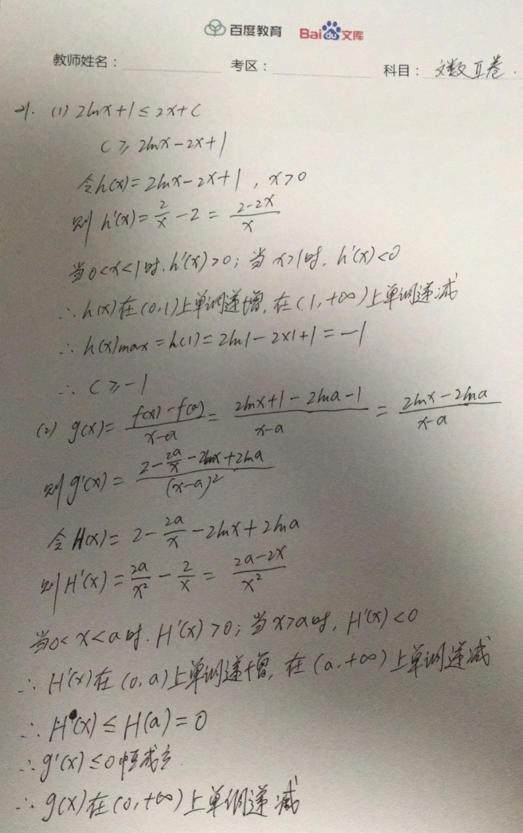 百度教育 Baidu文库
教师姓名： 考区： 科目： 文数Ⅱ卷.
21. (1) 2lnx+1≤2x+c
c≥2lnx-2x+1
令h(x)=2lnx-2x+1, x>0
则 h'(x)=2/x-2=(2-2x)/x
当0<x<1时, h'(x)>0; 当x>1时, h'(x)<0
∴h(x)在(0,1)上单调递增, 在(1,+∞)上单调递减
∴h(x)max=h(1)=2ln1-2×1+1=-1
∴ c≥-1
(2) g(x)=(f(x)-f(a))/(x-a)=(2lnx+1-2lna-1)/(x-a)=(2lnx-2lna)/(x-a)
则g'(x)=(2-2a/x-2lnx+2lna)/(x-a)²
令H(x)=2-2a/x-2lnx+2lna
则H'(x)=2a/x²-2/x=(2a-2x)/x²
当0<x<a时, H'(x)>0; 当x>a时, H'(x)<0
∴H'(x)在(0,a)上单调递增, 在(a,+∞)上单调递减
∴H(x)≤H(a)=0
∴g'(x)≤0恒成立
∴g(x)在(0,+∞)上单调递减